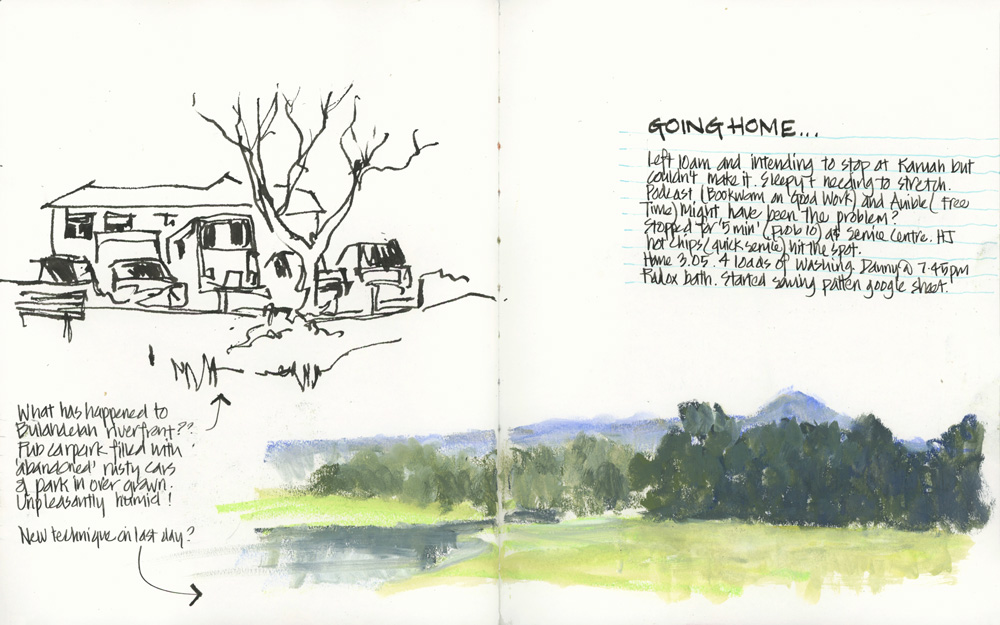 What has happened to
Bulahdelah riverfront??
Pub carpark filled with
'abandoned' rusty cars
& park in over grown.
Unpleasantly humid!
New technique on last day?
GOING HOME...
Left 10am and intending to stop at Karuah but
couldn't make it. Sleepy + needing to stretch.
Podcast (Bookworm on 'Good Work') and Audible (Free
Time) might have been the problem?
Stopped for '5 min' (prob 10) at Service Centre. HJ
hot chips (quick service) hit the spot.
Home 3.05. 4 loads of washing. Danny @ 7.45pm
Radox bath. Started sewing patten google sheet.